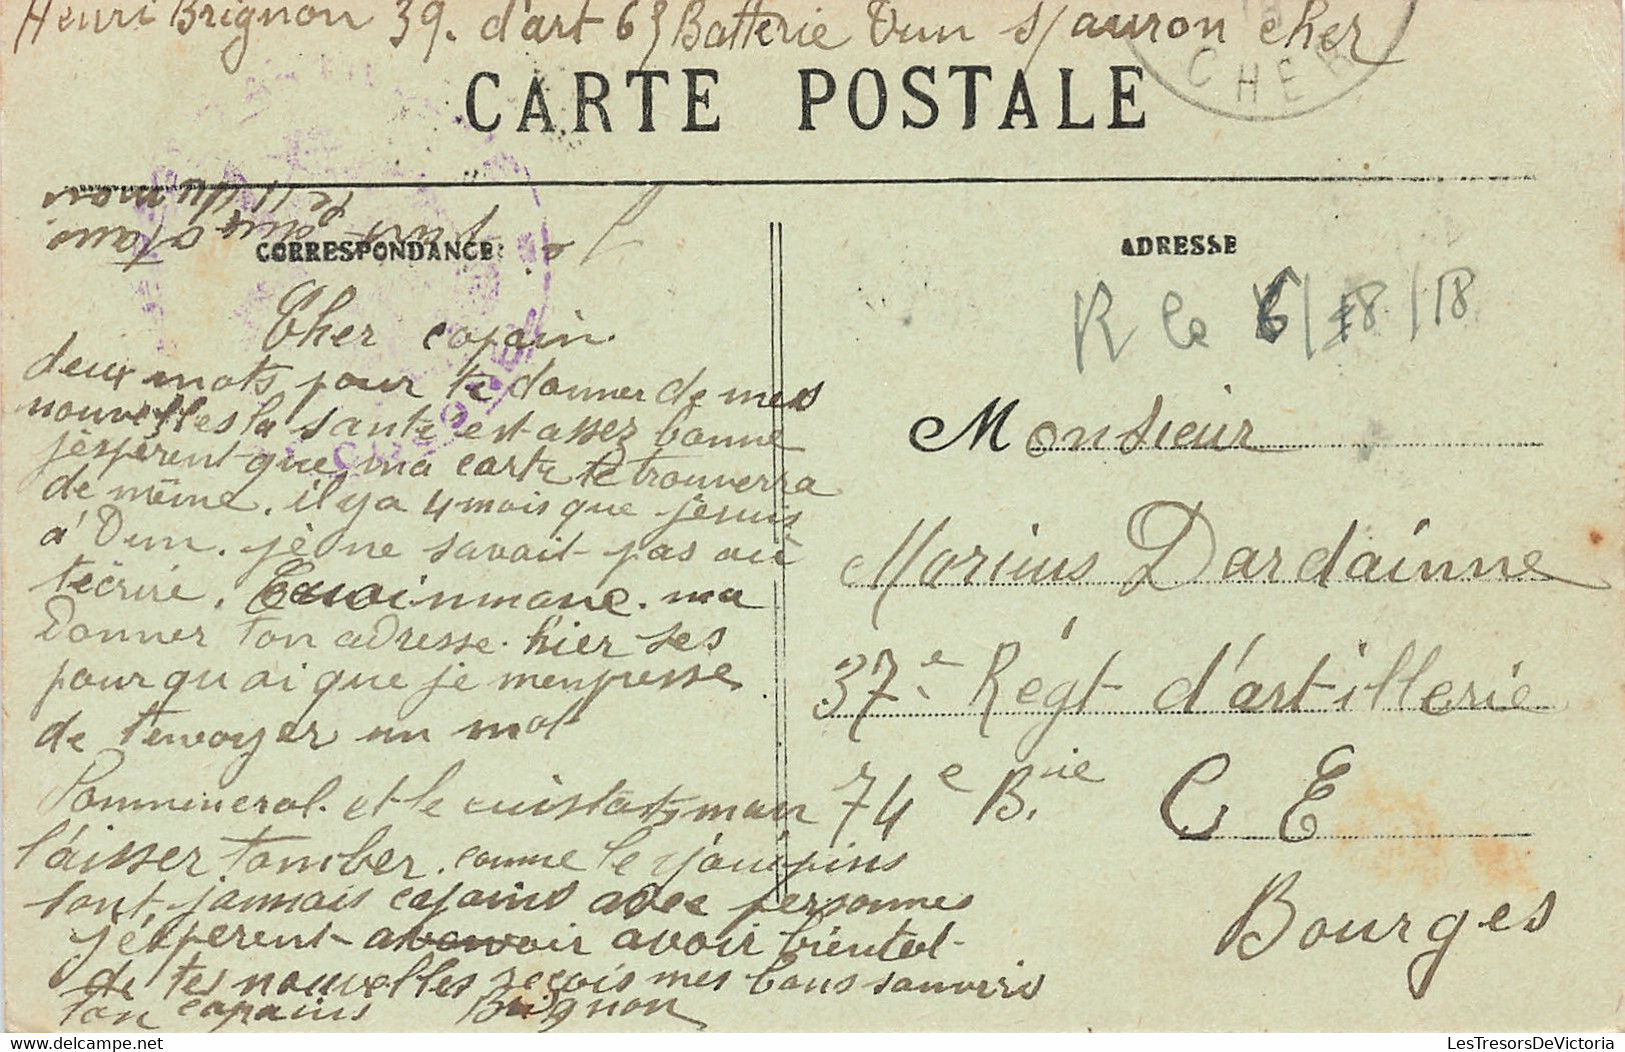 Henri Brignon 39. d'art 65 Batterie Dun s/ auron cher
CHER
CARTE POSTALE
CORRESPONDANCE
ADRESSE
R le 6/8/18
Cher copain.
deux mots pour te donner de mes
nouvelles la santé est assez bonne
j'espèrent que ma carte te trouverra
de même. il y a 4 mois que je suis
a' Dun. je ne savait pas où
t'ecrire.
Donner ton adresse. hier ses
pourquoi que je m'enpresse
de t'envoyer un mot
Pommerol. et le cuistots mon
laisser tomber. comme le
sont jammais copains avec personnes
j'esperent avoir bientot
de tes nouvelles reçois mes bons souvenirs
ton copains Brignon
Monsieur
Marius Dardainne
37e Régt d'artillerie
74e Bie C E
Bourges
LesTresorsDeVictoria
LesTresorsDeVictoria.com